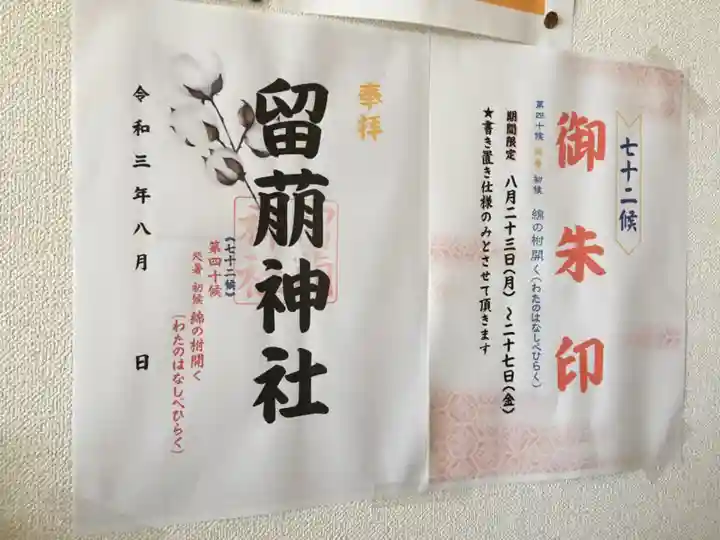 七十二候
御朱印
第四十候 処暑 初候 綿の柎開く(わたのはなしべひらく)
期間限定 八月二十三日(月)〜二十七日(金)
★書き置き仕様のみとさせて頂きます
奉拝
留萠神社
《七十二候》
第四十候
処暑 初候 綿の柎開く
(わたのはなしべひらく)
令和三年八月 日